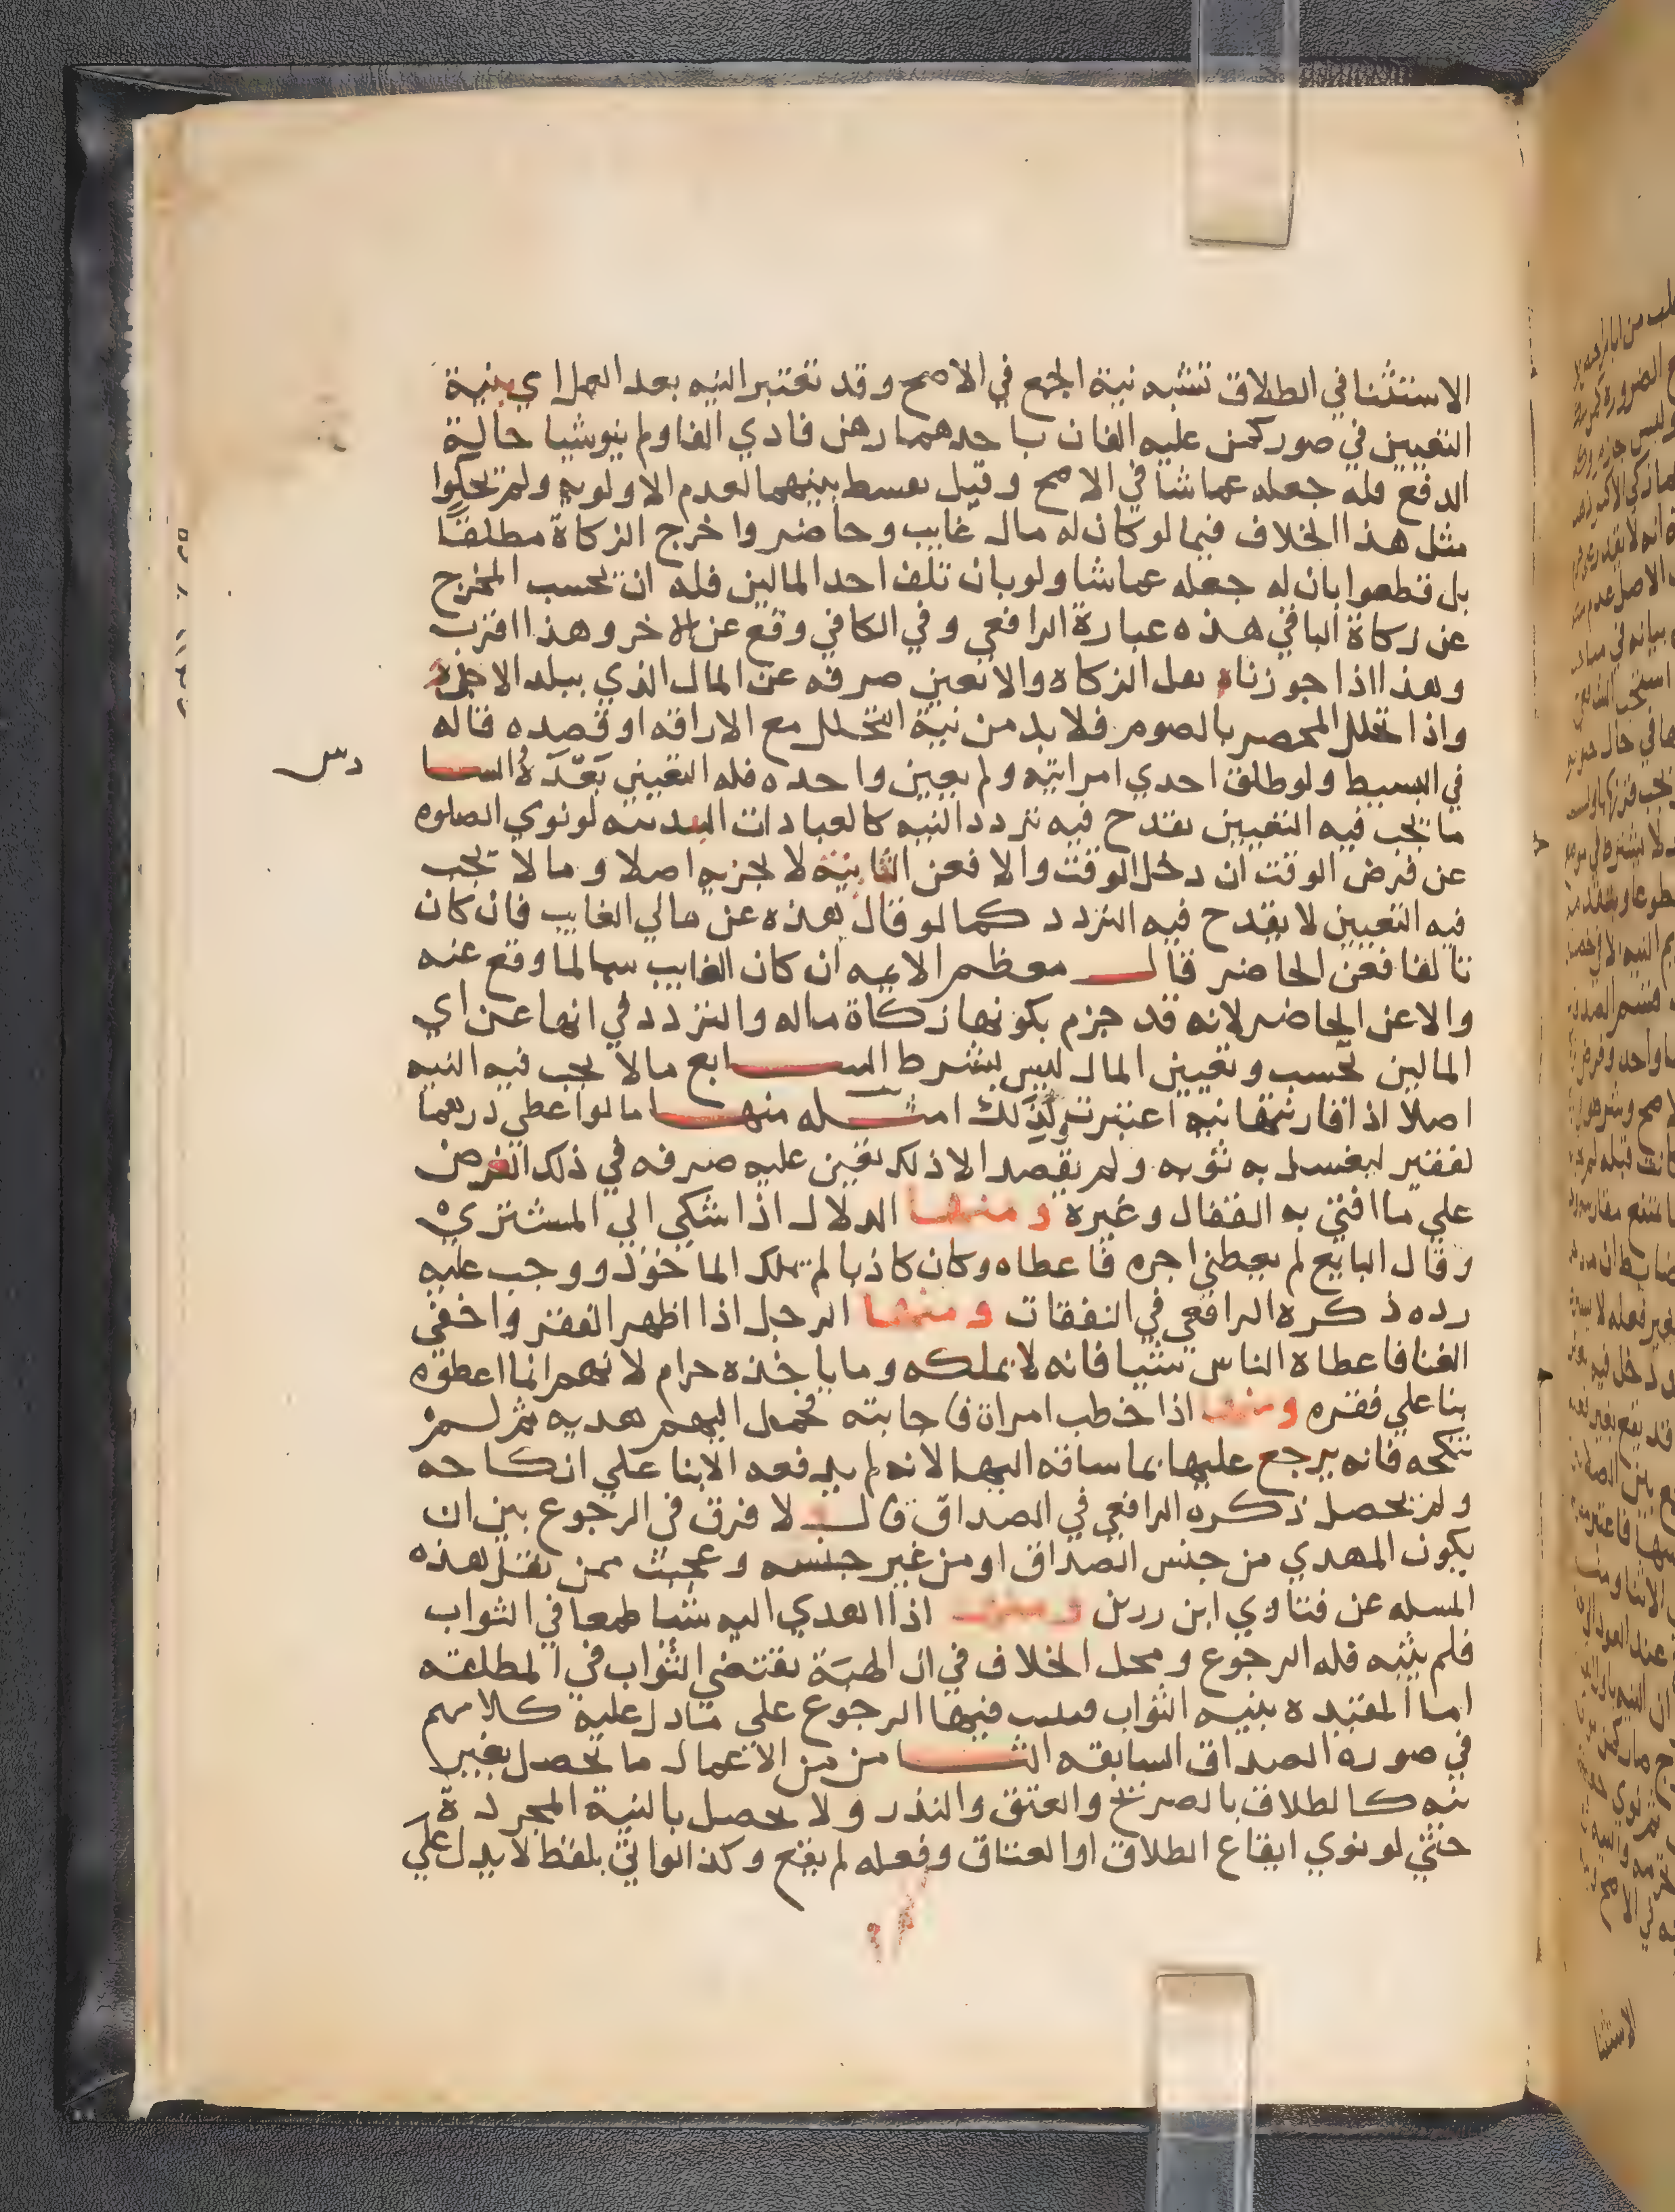 الاستثنا في الطلاق تشبه نية الجمع في الاصح وقد تعتبر النيه بعد العمل اي بنية
التعيين في صور كمن عليه الفان باحدهما رهن فادي الفا ولم ينو شيا حالة
الدفع فله جعله عما شا في الاصح وقيل يقسط بينهما لعدم الاولويه ولم يحكوا
مثل هذا الخلاف فيما لو كان له مال غايب وحاضر واخرج الزكاة مطلقا
بل قطعوا بان له جعله عما شا ولو بان تلف احد المالين فله ان يحسب المخرج
عن زكاة الباقي هذه عبارة الرافعي وفي الكافي وقع عن الاخر وهذا اقرب
وهذا اذا جوزناه نقل الزكاه والا تعين صرفه عن المال الذي ببلد الاجزه
واذا تحلل المحصر بالصوم فلا بد من نية التحلل مع الاراقه او قصده قاله
في البسيط ولو طلق احدي امراتيه ولم يعين واحده فله التعيين بعده السا
دس
ما يجب فيه التعيين يقدح فيه تردد النيه كالعبادات البدنيه لو نوي الصلوه
عن فرض الوقت ان دخل الوقت والا فعن الفايتة لا يجزيه اصلا وما لا يجب
فيه التعيين لا يقدح فيه التردد كما لو قال هذه عن مالي الغايب فان كان
تالفا فعن الحاضر قال معظم الايمه ان كان الغايب سالما وقع عنه
والا عن الحاضر لانه قد جزم بكونها زكاة ماله والتردد في انها عن اي
المالين تحسب وتعيين المال ليس بشرط السابع ما لا يجب فيه النيه
اصلا اذا قارنتها نيه اعتبرت ولذلك امثله منها ما لو اعطي درهما
لفقير ليغسل به ثوبه ولم يقصد الا ذلك تعين عليه صرفه في ذلك الغرض
علي ما افتي به القفال وغيره ومنها الدلال اذا شكي الي المشتري
وقال البايع لم يعطني اجره فاعطاه وكان كاذبا لم يملك الماخوذ ووجب عليه
رده ذكره الرافعي في النفقات ومنها الرجل اذا اظهر الفقر واخفي
الغنا فاعطاه الناس شيا فانه لا يملكه وما ياخذه حرام لانهم انما اعطوه
بنا علي فقره ومنها اذا خطب امراة فاجابته فحمل اليهم هديه ثم لم
تنكحه فانه يرجع عليها بما ساقه اليها لانه لم يدفعه الا بنا علي انكاحه
ولم يحصل ذكره الرافعي في الصداق قال ولا فرق في الرجوع بين ان
يكون المهدي من جنس الصداق او من غير جنسه وعجبت ممن نقل هذه
المسله عن فتاوي ابن رزين ومنها اذا اهدي اليه شيا طمعا في الثواب
فلم يثبه فله الرجوع ومحل الخلاف في ان الهبة تقتضي الثواب في المطلقه
اما المقيده بنيه الثواب فيثبت فيها الرجوع علي ما دل عليه كلامهم
في صوره الصداق السابقه الثامن من الاعمال ما يحصل بغير
نيه كالطلاق بالصريح والعتق والنذر ولا يحصل بالنية المجردة
حتي لو نوي ايقاع الطلاق او العتاق وفعله لم يقع وكذا لو اتي بلفظ لا يدل علي